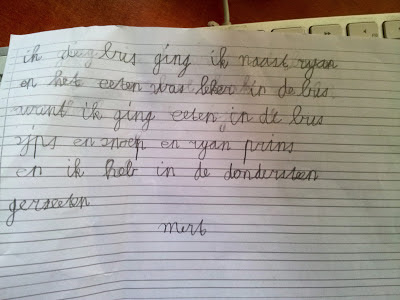 ik die bus ging ik naast ryan
en het eeten was leker in de bus
want ik ging eeten in de bus
sjps en snoep en ryan prins
en ik heb in de dondersteen
geraeeten
Mert